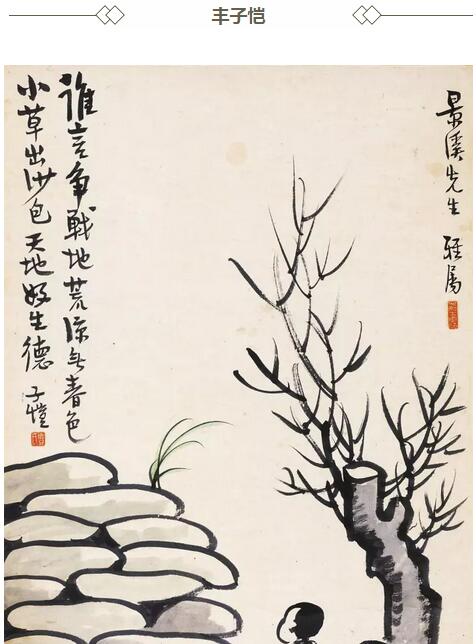 丰子恺
景溪先生 雅属
誰言争戰地荒涼无春色
小草出沙包天地好生德 子愷